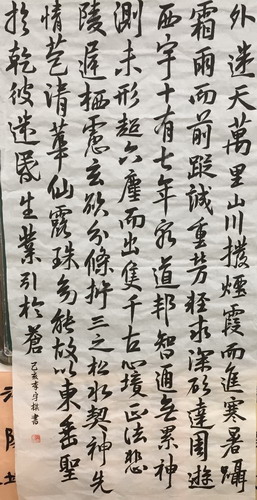 外迷天萬里山川撥煙霞而進寒暑躡
霜雨而前蹤誠重勞輕求深欲達周遊
西宇十有七年窮道邦智通無累神
測未形超六塵而出隻千古心境正法悲
陵遲栖慮玄欲分條析三之松水契神先
情苞清華仙露珠能故以東垂聖
於乾彼迷昏生業引於蒼
己亥書